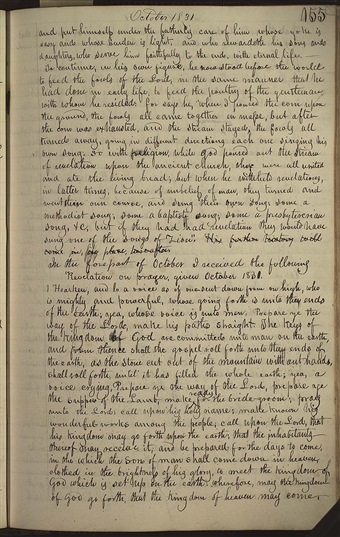 October 1831.
155
and put himself under the fatherly care of him whose yoke is
easy and whose burden is light, and who rewardeth his sons and
daughters, who serve him faithfully to the end, with eternal life.
To continue, in his own figure, he now stood before the world
to feed the fowls of the Lord, in the same manner that he
had done in early life, to feed the poultry of the gentleman
with whom he resided. For says he, when I poured the corn upon
the ground, the fowls all came together in masse, but after
the corn was exhausted, and the stream stayed, the fowls all
turned away, going in different directions each one singing his
own song. So with religion; while God poured out the stream
of revelation upon the ancient church, they were all united
and ate the living bread; but when he withheld revelations,
in latter times, because of unbelief of man, they turned and
went their own course, and sung their own song: some a
methodist song; some a baptist song; some a presbyterian
song, &c; but if they had had revelation they would have
sung one of the songs of Zion.
In the forepart of October I received the following
Revelation on prayer, given October 1831.
1 Hearken, and lo a voice as of one sent down from on high, who
is mighty and powerful, whose going forth is unto the ends
of the earth; yea, whose voice is unto men, Prepare ye the
way of the Lord, make his paths straight. The keys of
the kingdom of God are committed unto man on the earth,
and from thence shall the gospel roll forth unto the ends of
the earth, as the stone cut out of the mountain without hands,
shall roll forth, until it has filled the whole earth; yea, a
voice crying, Prepare ye the way of the Lord, prepare ye
the supper of the Lamb, make ready for the bridegroom; pray
unto the Lord; call upon his holy name; make known his
wonderful works among the people; call upon the Lord, that
his kingdom may go forth upon the earth; that the inhabitants
thereof may receive it, and be prepared for the days to come,
in the which the son of man shall come down in heaven,
clothed in the brightness of his glory, to meet the kingdom of
God which is set up on the earth: wherefore, may the kingdom
of God go forth, that the kingdom of heaven may come,